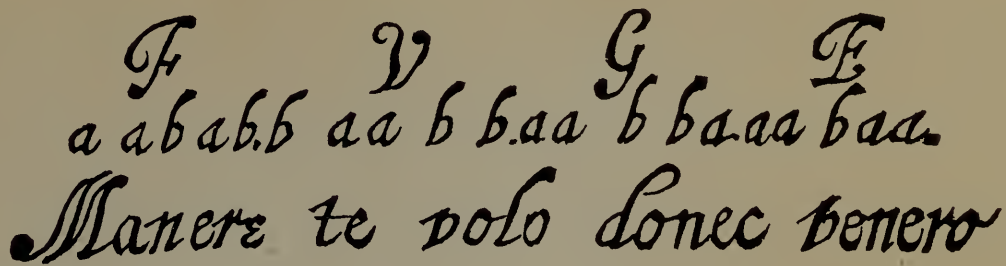 F V G E
aabab.baabb.aabba.aabaa.
Manere te volo donec venero